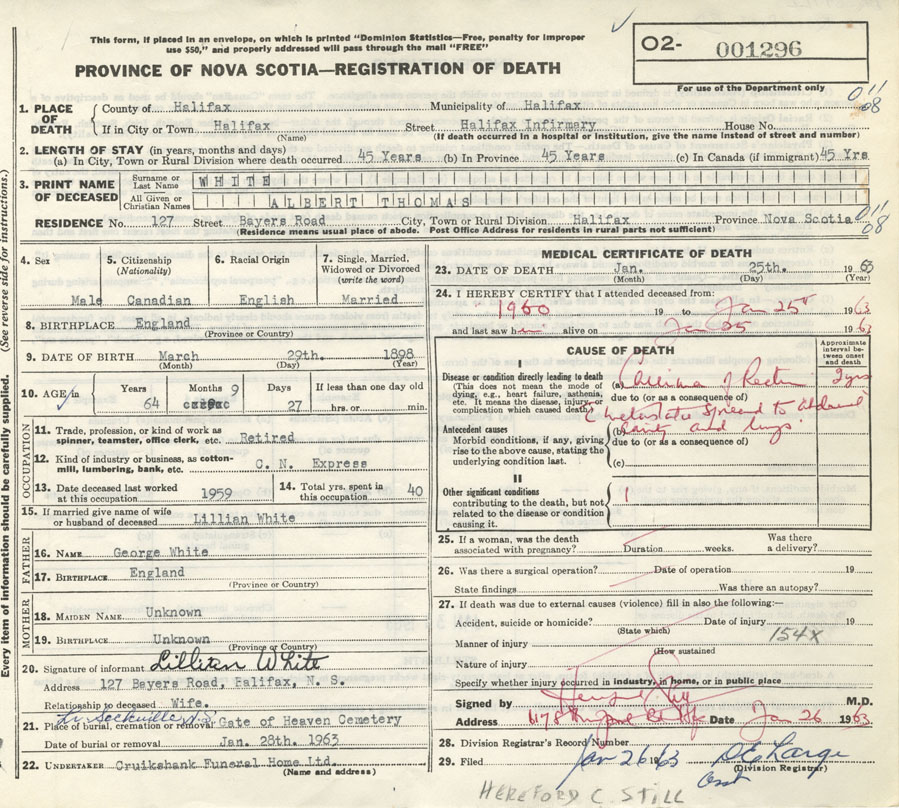 This form, if placed in an envelope, on which is printed "Dominion Statistics—Free, penalty for improper
use $50," and properly addressed will pass through the mail "FREE"
PROVINCE OF NOVA SCOTIA—REGISTRATION OF DEATH
O2- 001296
For use of the Department only
011
08
1. PLACE OF DEATH County of Halifax Municipality of Halifax
If in City or Town Halifax Street Halifax Infirmary House No.
(Name) (If death occurred in a hospital or institution, give the name instead of street and number)
2. LENGTH OF STAY (in years, months and days)
(a) In City, Town or Rural Division where death occurred 45 Years (b) In Province 45 Years (c) In Canada (if immigrant) 45 Yrs
3. PRINT NAME OF DECEASED Surname or Last Name WHITE
All Given or Christian Names ALBERT THOMAS
RESIDENCE No. 127 Street Bayers Road City, Town or Rural Division Halifax Province Nova Scotia
011
08
(Residence means usual place of abode. Post Office Address for residents in rural parts not sufficient)
4. Sex 5. Citizenship (Nationality) 6. Racial Origin 7. Single, Married, Widowed or Divorced (write the word)
Male Canadian English Married
8. BIRTHPLACE England
(Province or Country)
9. DATE OF BIRTH March 29th. 1898
(Month) (Day) (Year)
10. AGE in Years Months Days If less than one day old
64 9 27 hrs. or min.
OCCUPATION
11. Trade, profession, or kind of work as spinner, teamster, office clerk, etc. Retired
12. Kind of industry or business, as cotton-mill, lumbering, bank, etc. C. N. Express
13. Date deceased last worked at this occupation 1959 14. Total yrs. spent in this occupation 40
15. If married give name of wife or husband of deceased Lillian White
FATHER
16. NAME George White
17. BIRTHPLACE England
(Province or Country)
MOTHER
18. MAIDEN NAME Unknown
19. BIRTHPLACE Unknown
(Province or Country)
20. Signature of informant Lillian White
Address 127 Bayers Road, Halifax, N. S.
Relationship to deceased Wife.
Lr. Sackville N.S.
21. Place of burial, cremation or removal Gate of Heaven Cemetery
Date of burial or removal Jan. 28th. 1963
22. UNDERTAKER Cruikshank Funeral Home Ltd.
(Name and address)
Every item of information should be carefully supplied. (See reverse side for instructions.)
MEDICAL CERTIFICATE OF DEATH
23. DATE OF DEATH Jan. 25th. 1963
(Month) (Day) (Year)
24. I HEREBY CERTIFY that I attended deceased from:
1960 19 to Jan 25 1963
and last saw him alive on Jan 25 1963
CAUSE OF DEATH
Approximate interval between onset and death
I
Disease or condition directly leading to death
(This does not mean the mode of dying, e.g., heart failure, asthenia, etc. It means the disease, injury, or complication which caused death)
(a) of Rectum 2 yrs
due to (or as a consequence of)
Metastatic spread to abdominal
Antecedent causes
Morbid conditions, if any, giving rise to the above cause, stating the underlying condition last.
(b) cavity and lungs.
due to (or as a consequence of)
(c)
II
Other significant conditions
contributing to the death, but not related to the disease or condition causing it.
25. If a woman, was the death associated with pregnancy? Duration weeks. Was there a delivery?
26. Was there a surgical operation? Date of operation 19
State findings Was there an autopsy?
27. If death was due to external causes (violence) fill in also the following:—
Accident, suicide or homicide? Date of injury 19
(State which)
154X
Manner of injury
(How sustained
Nature of injury
Specify whether injury occurred in industry, in home, or in public place
Signed by M.D.
Address Date Jan 26 1963
28. Division Registrar's Record Number
29. Filed Jan 26 1963 D E Large
Asst (Division Registrar)
HEREFORD C. STILL